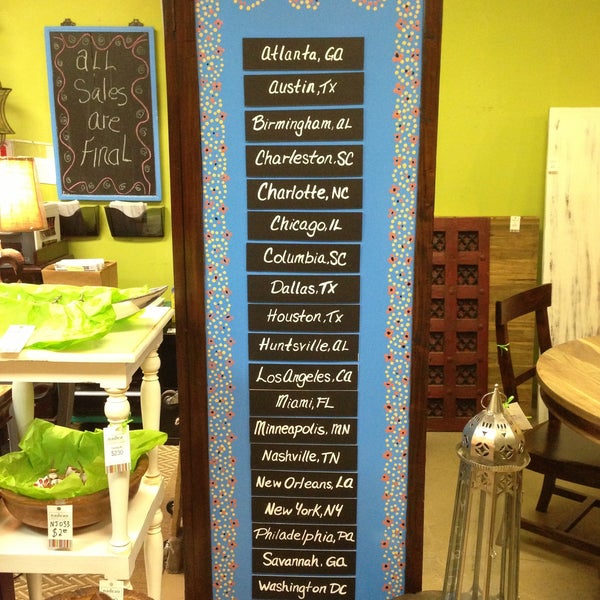 aLL
Sales
are
FinaL
Atlanta, GA
Austin, TX
Birmingham, aL
Charleston, SC
Charlotte, NC
Chicago, IL
Columbia, SC
Dallas, TX
Houston, Tx
Huntsville, AL
Los Angeles, Ca
Miami, FL
Minneapolis, MN
Nashville, TN
New Orleans, La
New York, NY
Philadelphia, PA
Savannah, GA
Washington DC
$230
NJ033
$2